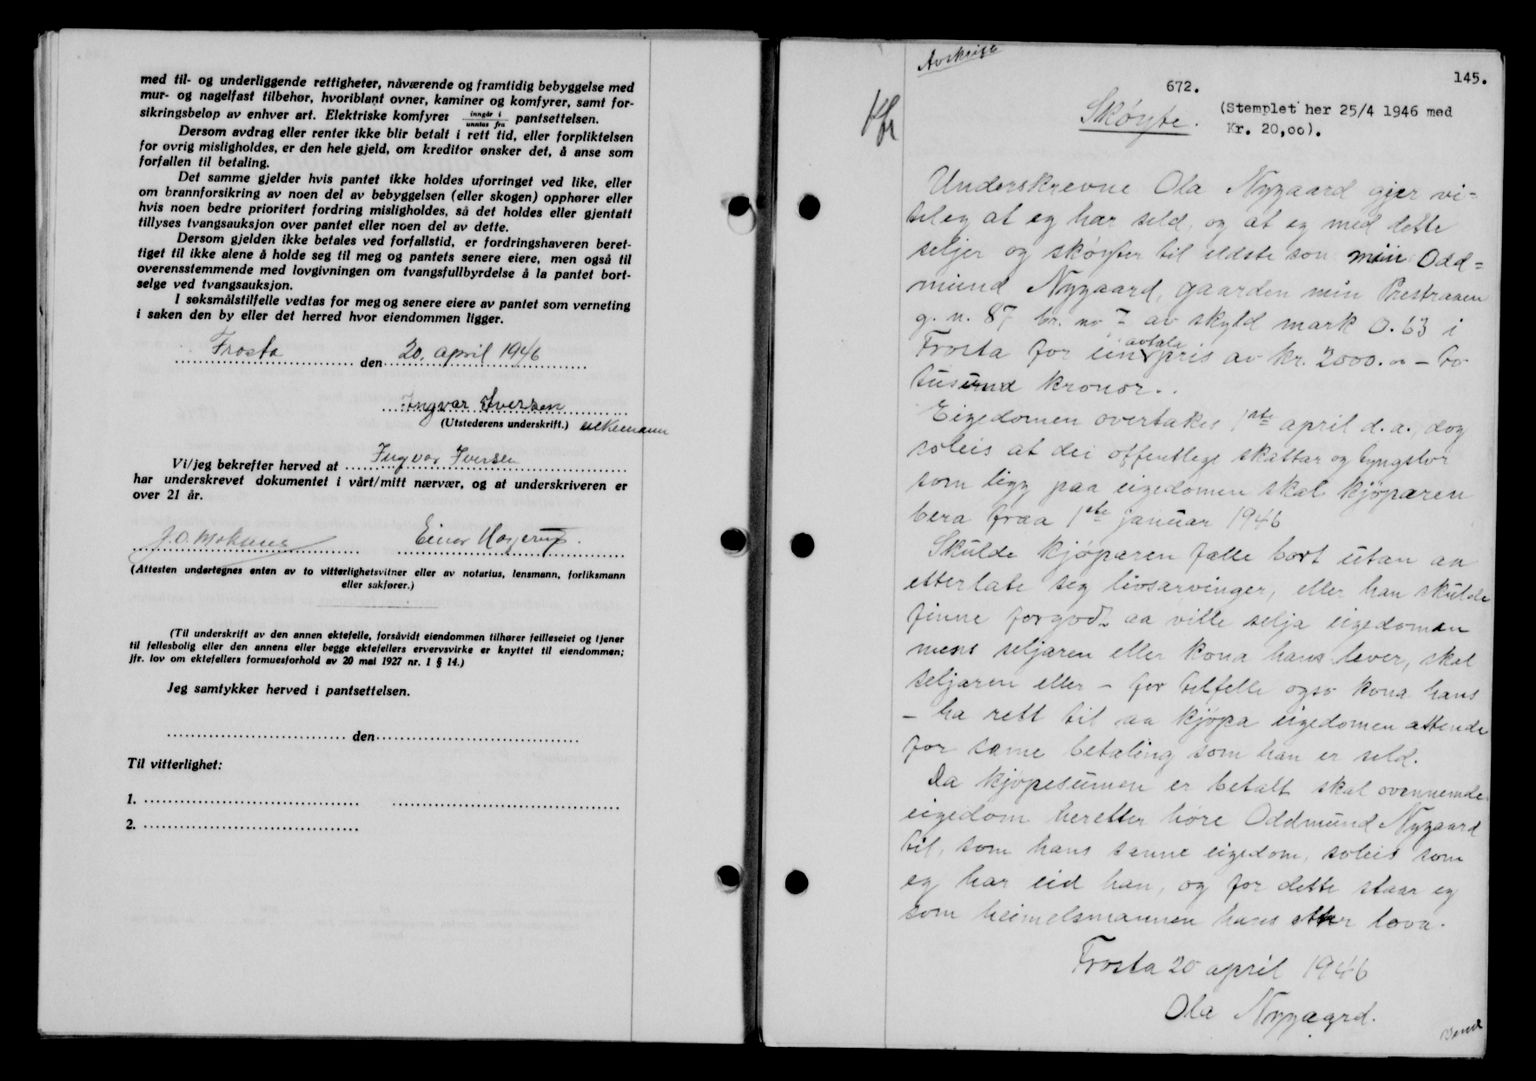 med til- og underliggende rettigheter, nåværende og framtidig bebyggelse med
mur- og nagelfast tilbehør, hvoriblant ovner, kaminer og komfyrer, samt for-
sikringsbeløp av enhver art. Elektriske komfyrer inngår i / unntas fra pantsettelsen.
Dersom avdrag eller renter ikke blir betalt i rett tid, eller forpliktelsen
for øvrig misligholdes, er den hele gjeld, om kreditor ønsker det, å anse som
forfallen til betaling.
Det samme gjelder hvis pantet ikke holdes uforringet ved like, eller
om brannforsikring av noen del av bebyggelsen (eller skogen) opphører eller
hvis noen bedre prioritert fordring misligholdes, så det holdes eller gjentatt
tillyses tvangsauksjon over pantet eller noen del av dette.
Dersom gjelden ikke betales ved forfallstid, er fordringshaveren beret-
tiget til ikke alene å holde seg til meg og pantets senere eiere, men også til
overensstemmende med lovgivningen om tvangsfullbyrdelse å la pantet bort-
selge ved tvangsauksjon.
I søksmålstilfelle vedtas for meg og senere eiere av pantet som verneting
i saken den by eller det herred hvor eiendommen ligger.
Frosta den 20. april 1946
Ingvar Iversen
(Utstederens underskrift.) ukemann
Vi/jeg bekrefter herved at Ingvar Iversen
har underskrevet dokumentet i vårt/mitt nærvær, og at underskriveren er
over 21 år.
J. O. Moksnes Einar Hagerup.
(Attesten undertegnes enten av to vitterlighetsvitner eller av notarius, lensmann, forliksmann
eller sakfører.)
(Til underskrift av den annen ektefelle, forsåvidt eiendommen tilhører felleseiet og tjener
til fellesbolig eller den annens eller begge ektefellers ervervsvirke er knyttet til eiendommen;
jfr. lov om ektefellers formuesforhold av 20 mai 1927 nr. 1 § 14.)
Jeg samtykker herved i pantsettelsen.
den
Til vitterlighet:
1.
2.
Avskrift
145.
672.
Skøyte.
(Stemplet her 25/4 1946 med
Kr. 20,00).
Underskrevne Ola Nygaard gjer vi-
terleg at eg har seld, og at eg med dette
seljer og skøyter til eldste son min Odd=
mund Nygaard, gaarden min Prestraaen
g. n. 87 br. no 7 av skyld mark 0.63 i
Frosta for ein avtale pris av kr. 2000.00 - to
tusund kronor.
Eigedomen overtakes 1ste april d. a., dog
soleis at dei offentlege skattar og tyngslor
som ligg paa eigedomen skal kjøparen
bera fraa 1ste januar 1946
Skulde kjøparen falle bort utan aa
etterlate seg livsarvinger, eller han skulde
finne forgodt aa ville selja eigedomen
mens seljaren eller kona hans lever, skal
seljaren eller - for tilfelle ogso kona hans
- ha rett til aa kjøpa eigedomen attende
for same betaling som han er seld.
Da kjøpesumen er betalt skal ovannemde
eigedom heretter høre Oddmund Nygaard
til, som hans sanne eigedom, soleis som
eg har eid han, og for dette staar eg
som heimelsmannen hans etter lova.
Frosta 20 april 1946
Ola Nygaard.